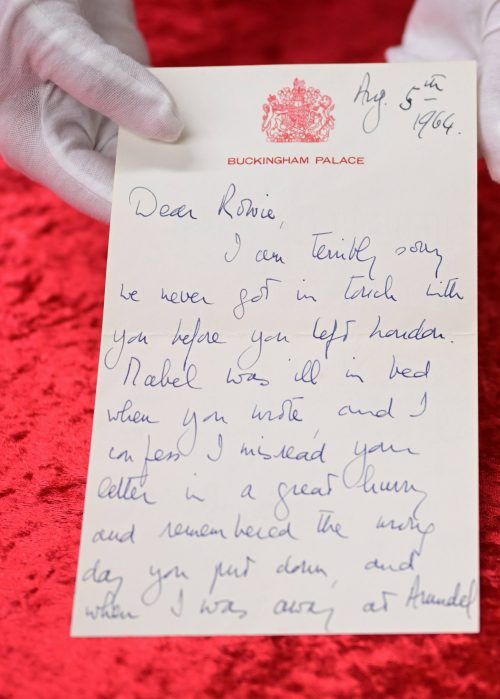 Aug. 5th
1964.
BUCKINGHAM PALACE
Dear Rowie,
I am terribly sorry
we never got in touch with
you before you left London.
Mabel was ill in bed
when you wrote, and I
confess I misread your
letter in a great hurry
and remembered the wrong
day you put down, and
when I was away at Arundel